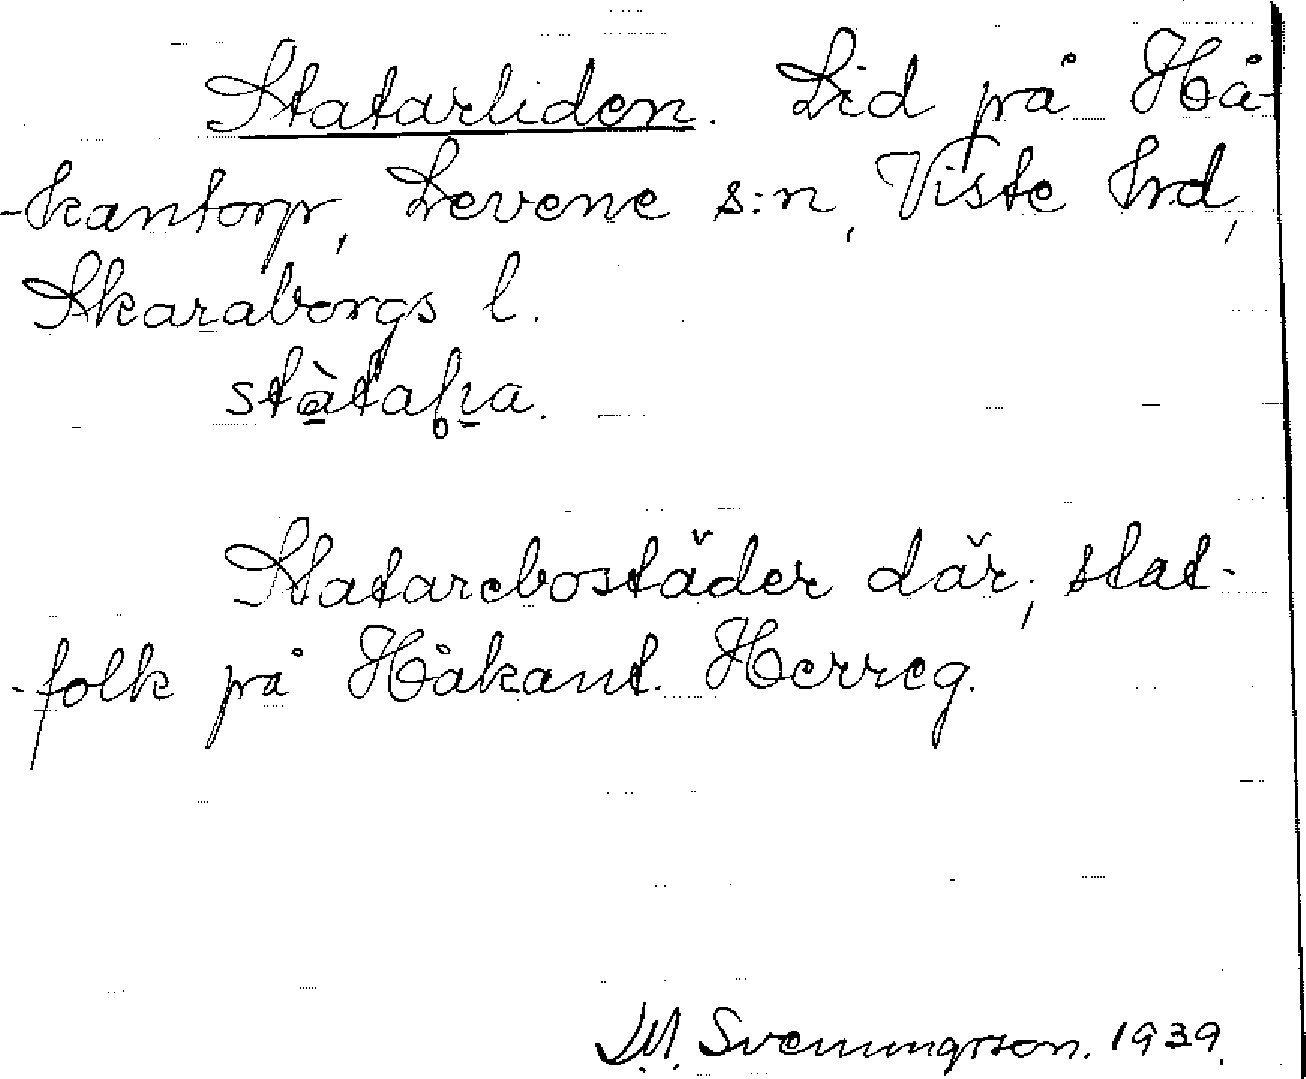 Statarliden. Lid på Hå-
-kantorp, Levene s:n, Viste hrd,
Skaraborgs l.
Statarebostäder där, stat-
-folk på Håkant. Herreg.
J.M. Svenungsson. 1939.